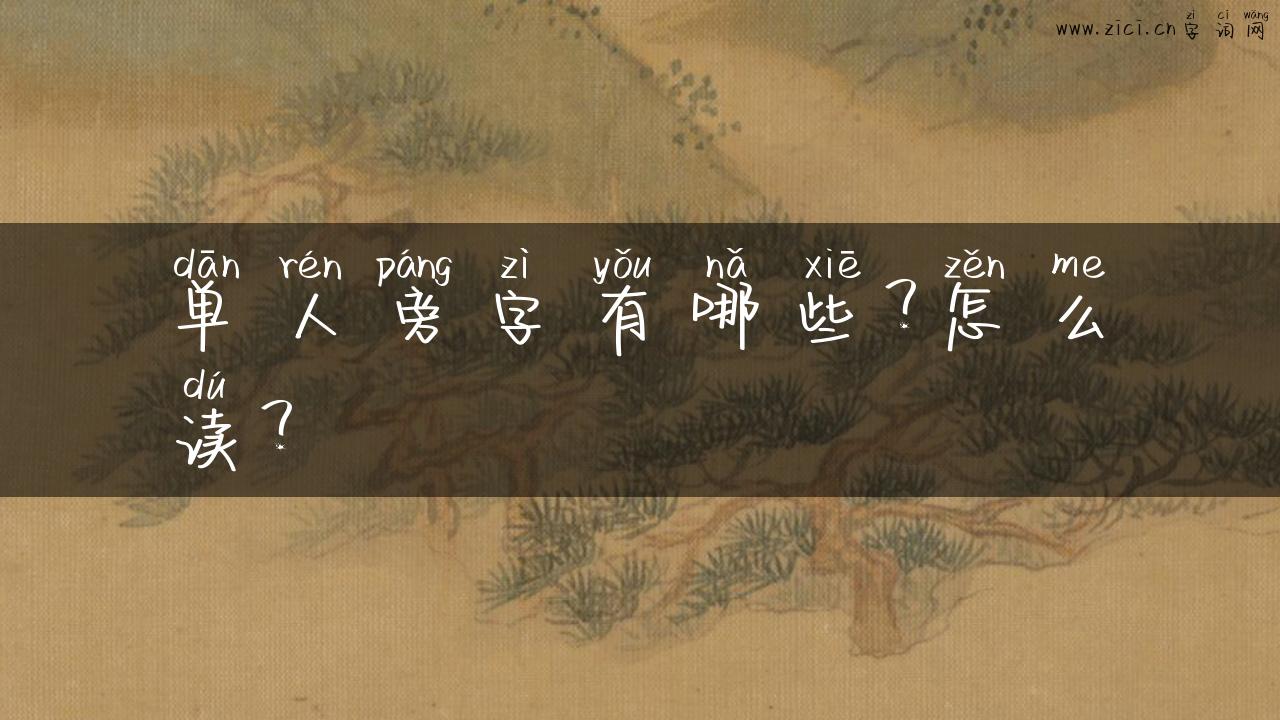 zì cí wǎng
www.zici.cn 字词网
dān rén páng zì yǒu nǎ xiē zěn me
单人旁字有哪些?怎么
dú
读?